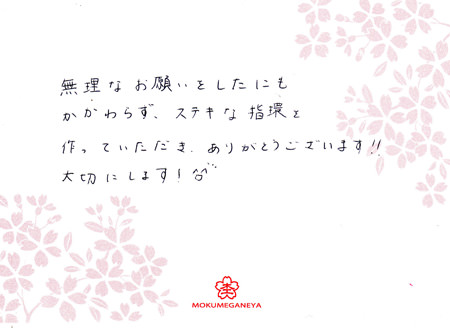 無理なお願いをしたにも
かかわらず、ステキな指環を
作っていただき、ありがとうございます!!
大切にします!
MOKUMEGANEYA